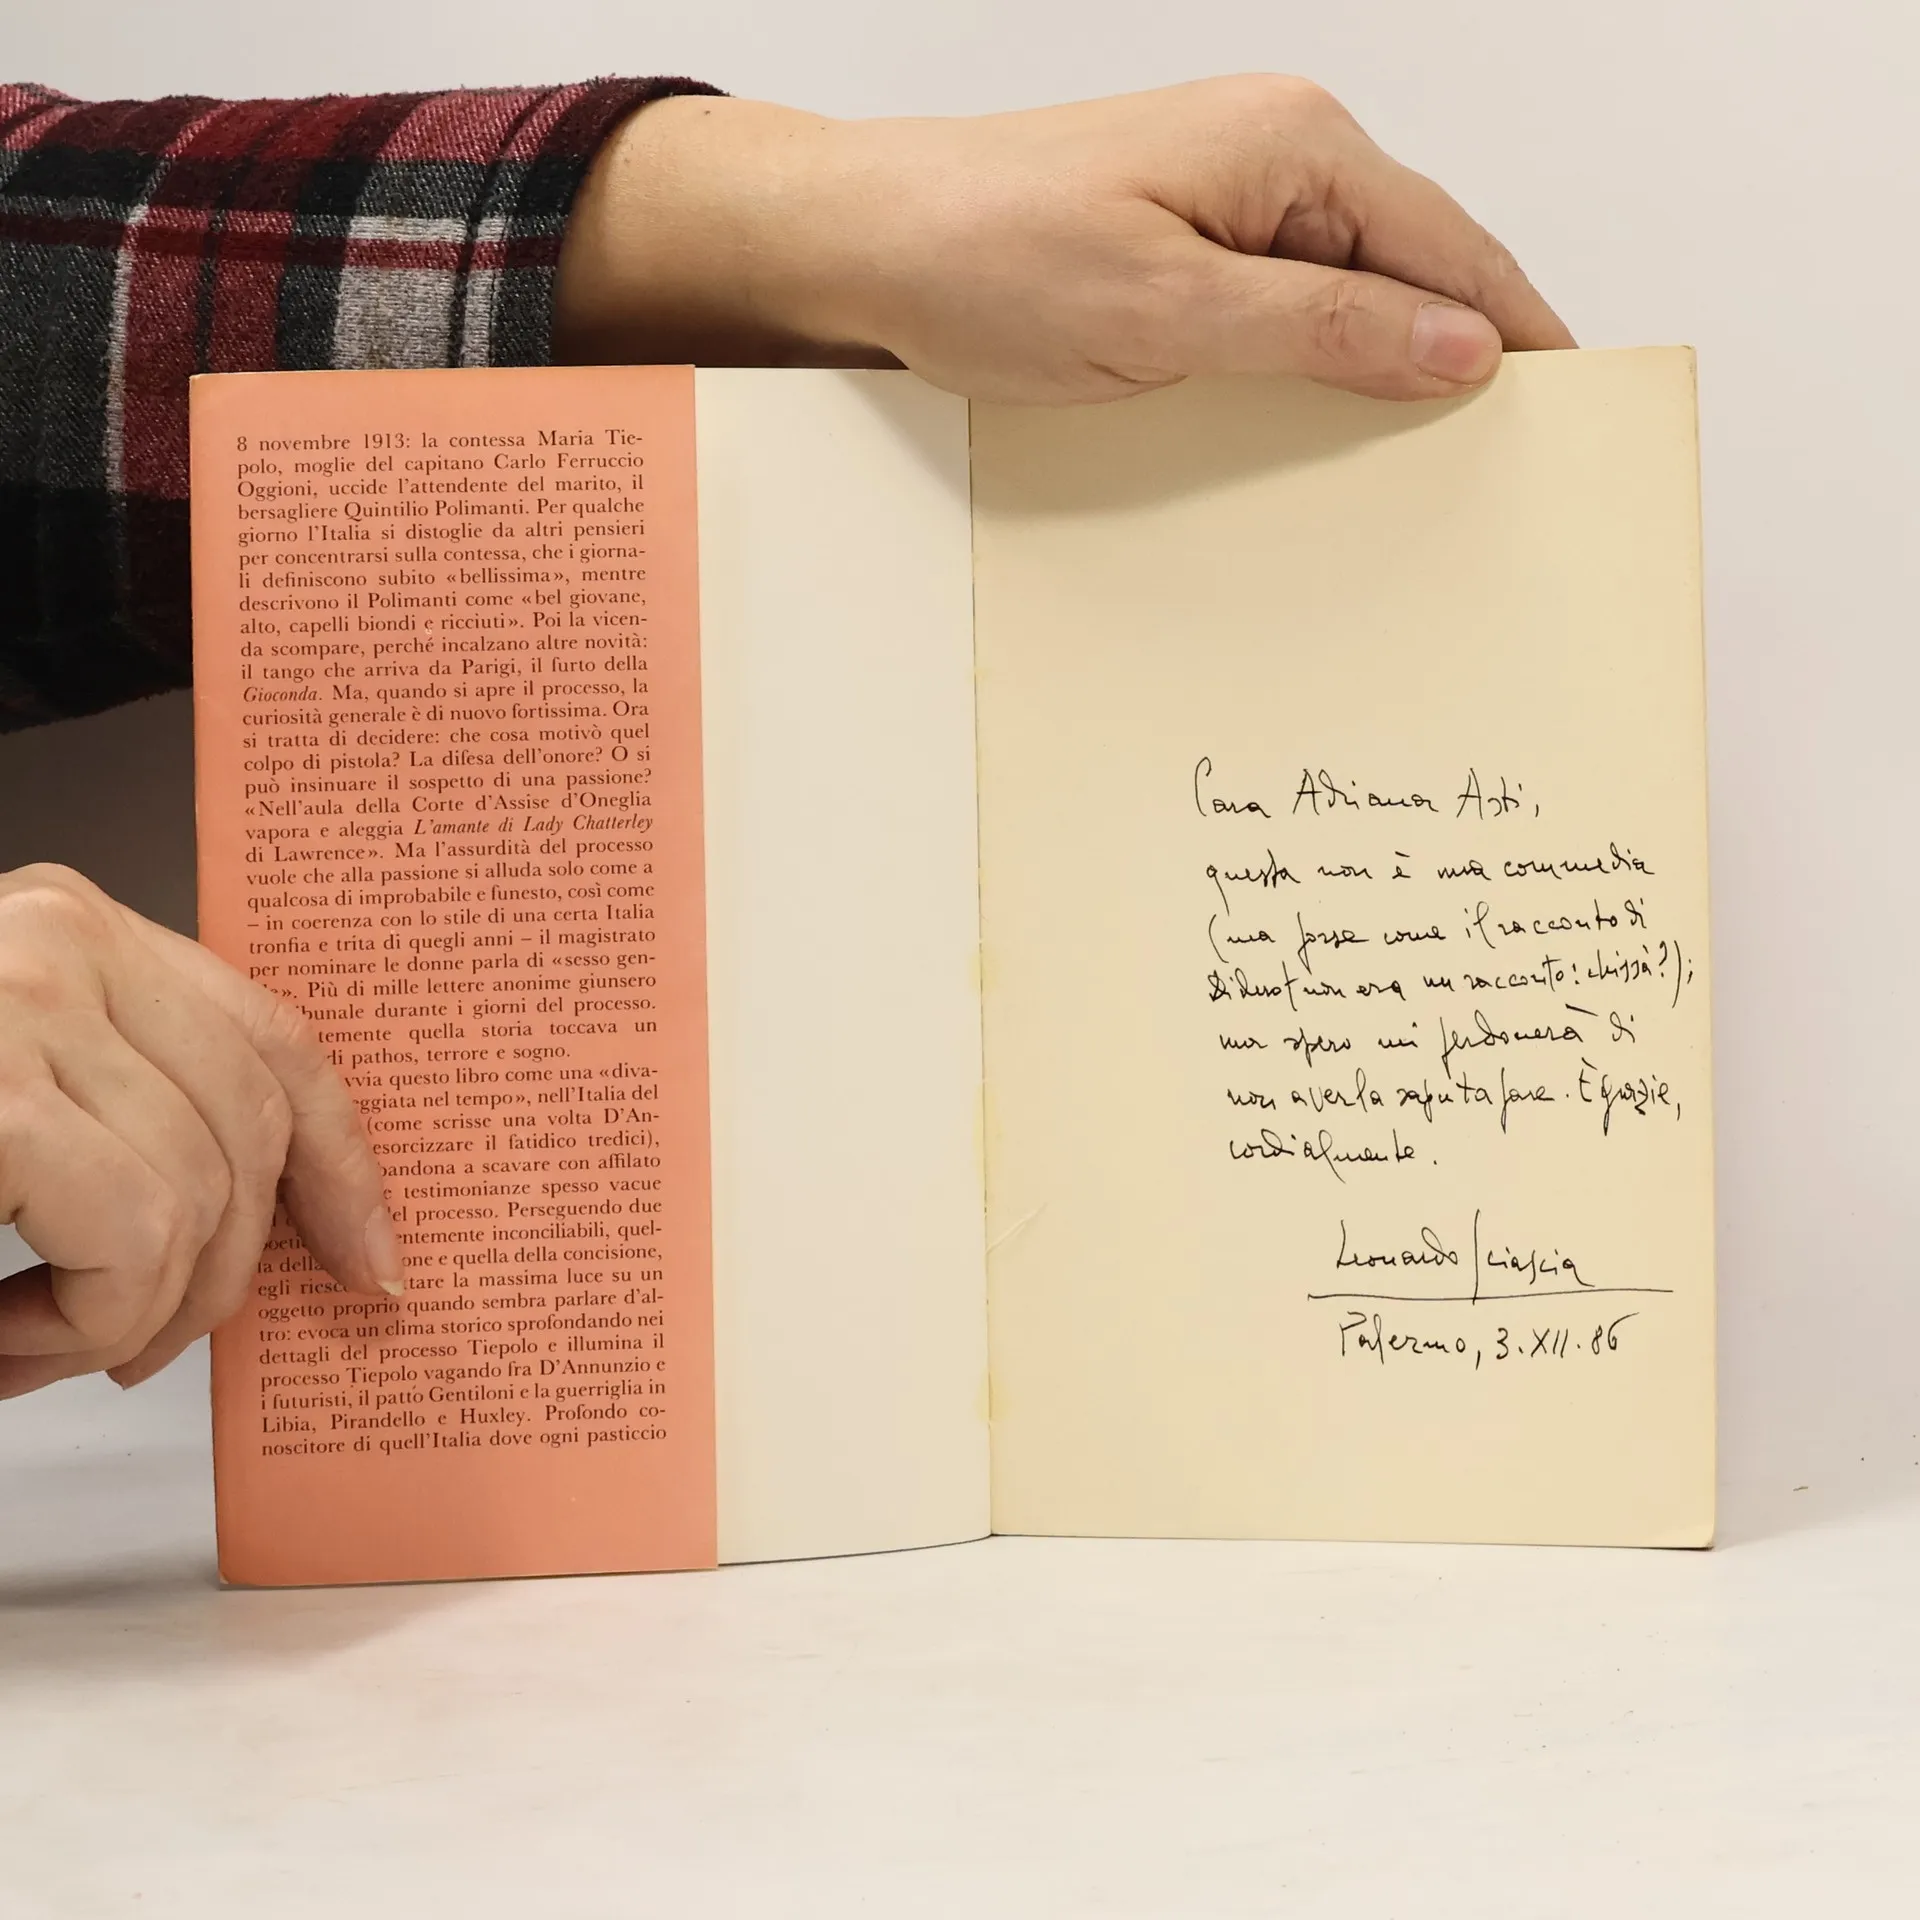 8 novembre 1913: la contessa Maria Tie-
polo, moglie del capitano Carlo Ferruccio
Oggioni, uccide l'attendente del marito, il
bersagliere Quintilio Polimanti. Per qualche
giorno l'Italia si distoglie da altri pensieri
per concentrarsi sulla contessa, che i giorna-
li definiscono subito «bellissima», mentre
descrivono il Polimanti come «bel giovane,
alto, capelli biondi e ricciuti». Poi la vicen-
da scompare, perché incalzano altre novità:
il tango che arriva da Parigi, il furto della
Gioconda. Ma, quando si apre il processo, la
curiosità generale è di nuovo fortissima. Ora
si tratta di decidere: che cosa motivò quel
colpo di pistola? La difesa dell'onore? O si
può insinuare il sospetto di una passione?
«Nell'aula della Corte d'Assise d'Oneglia
vapora e aleggia L'amante di Lady Chatterley
di Lawrence». Ma l'assurdità del processo
vuole che alla passione si alluda solo come a
qualcosa di improbabile e funesto, così come
– in coerenza con lo stile di una certa Italia
tronfia e trita di quegli anni – il magistrato
per nominare le donne parla di «sesso gen-
». Più di mille lettere anonime giunsero
durante i giorni del processo.
quella storia toccava un
di pathos, terrore e sogno.
questo libro come una «diva-
nel tempo», nell'Italia del
(come scrisse una volta D'An-
esorcizzare il fatidico tredici),
a scavare con affilato
testimonianze spesso vacue
del processo. Perseguendo due
inconciliabili, quel-
la della e quella della concisione,
egli la massima luce su un
oggetto proprio quando sembra parlare d'al-
tro: evoca un clima storico sprofondando nei
dettagli del processo Tiepolo e illumina il
processo Tiepolo vagando fra D'Annunzio e
i futuristi, il patto Gentiloni e la guerriglia in
Libia, Pirandello e Huxley. Profondo co-
noscitore di quell'Italia dove ogni pasticcio
Cara Adriana Asti,
questa non è una commedia
(ma forse come il racconto di
Diderot non era un racconto: chissà?);
ma spero mi perdonerà di
non averla saputa fare. E grazie,
cordialmente.
Leonardo Sciascia
Palermo, 3.XII.86